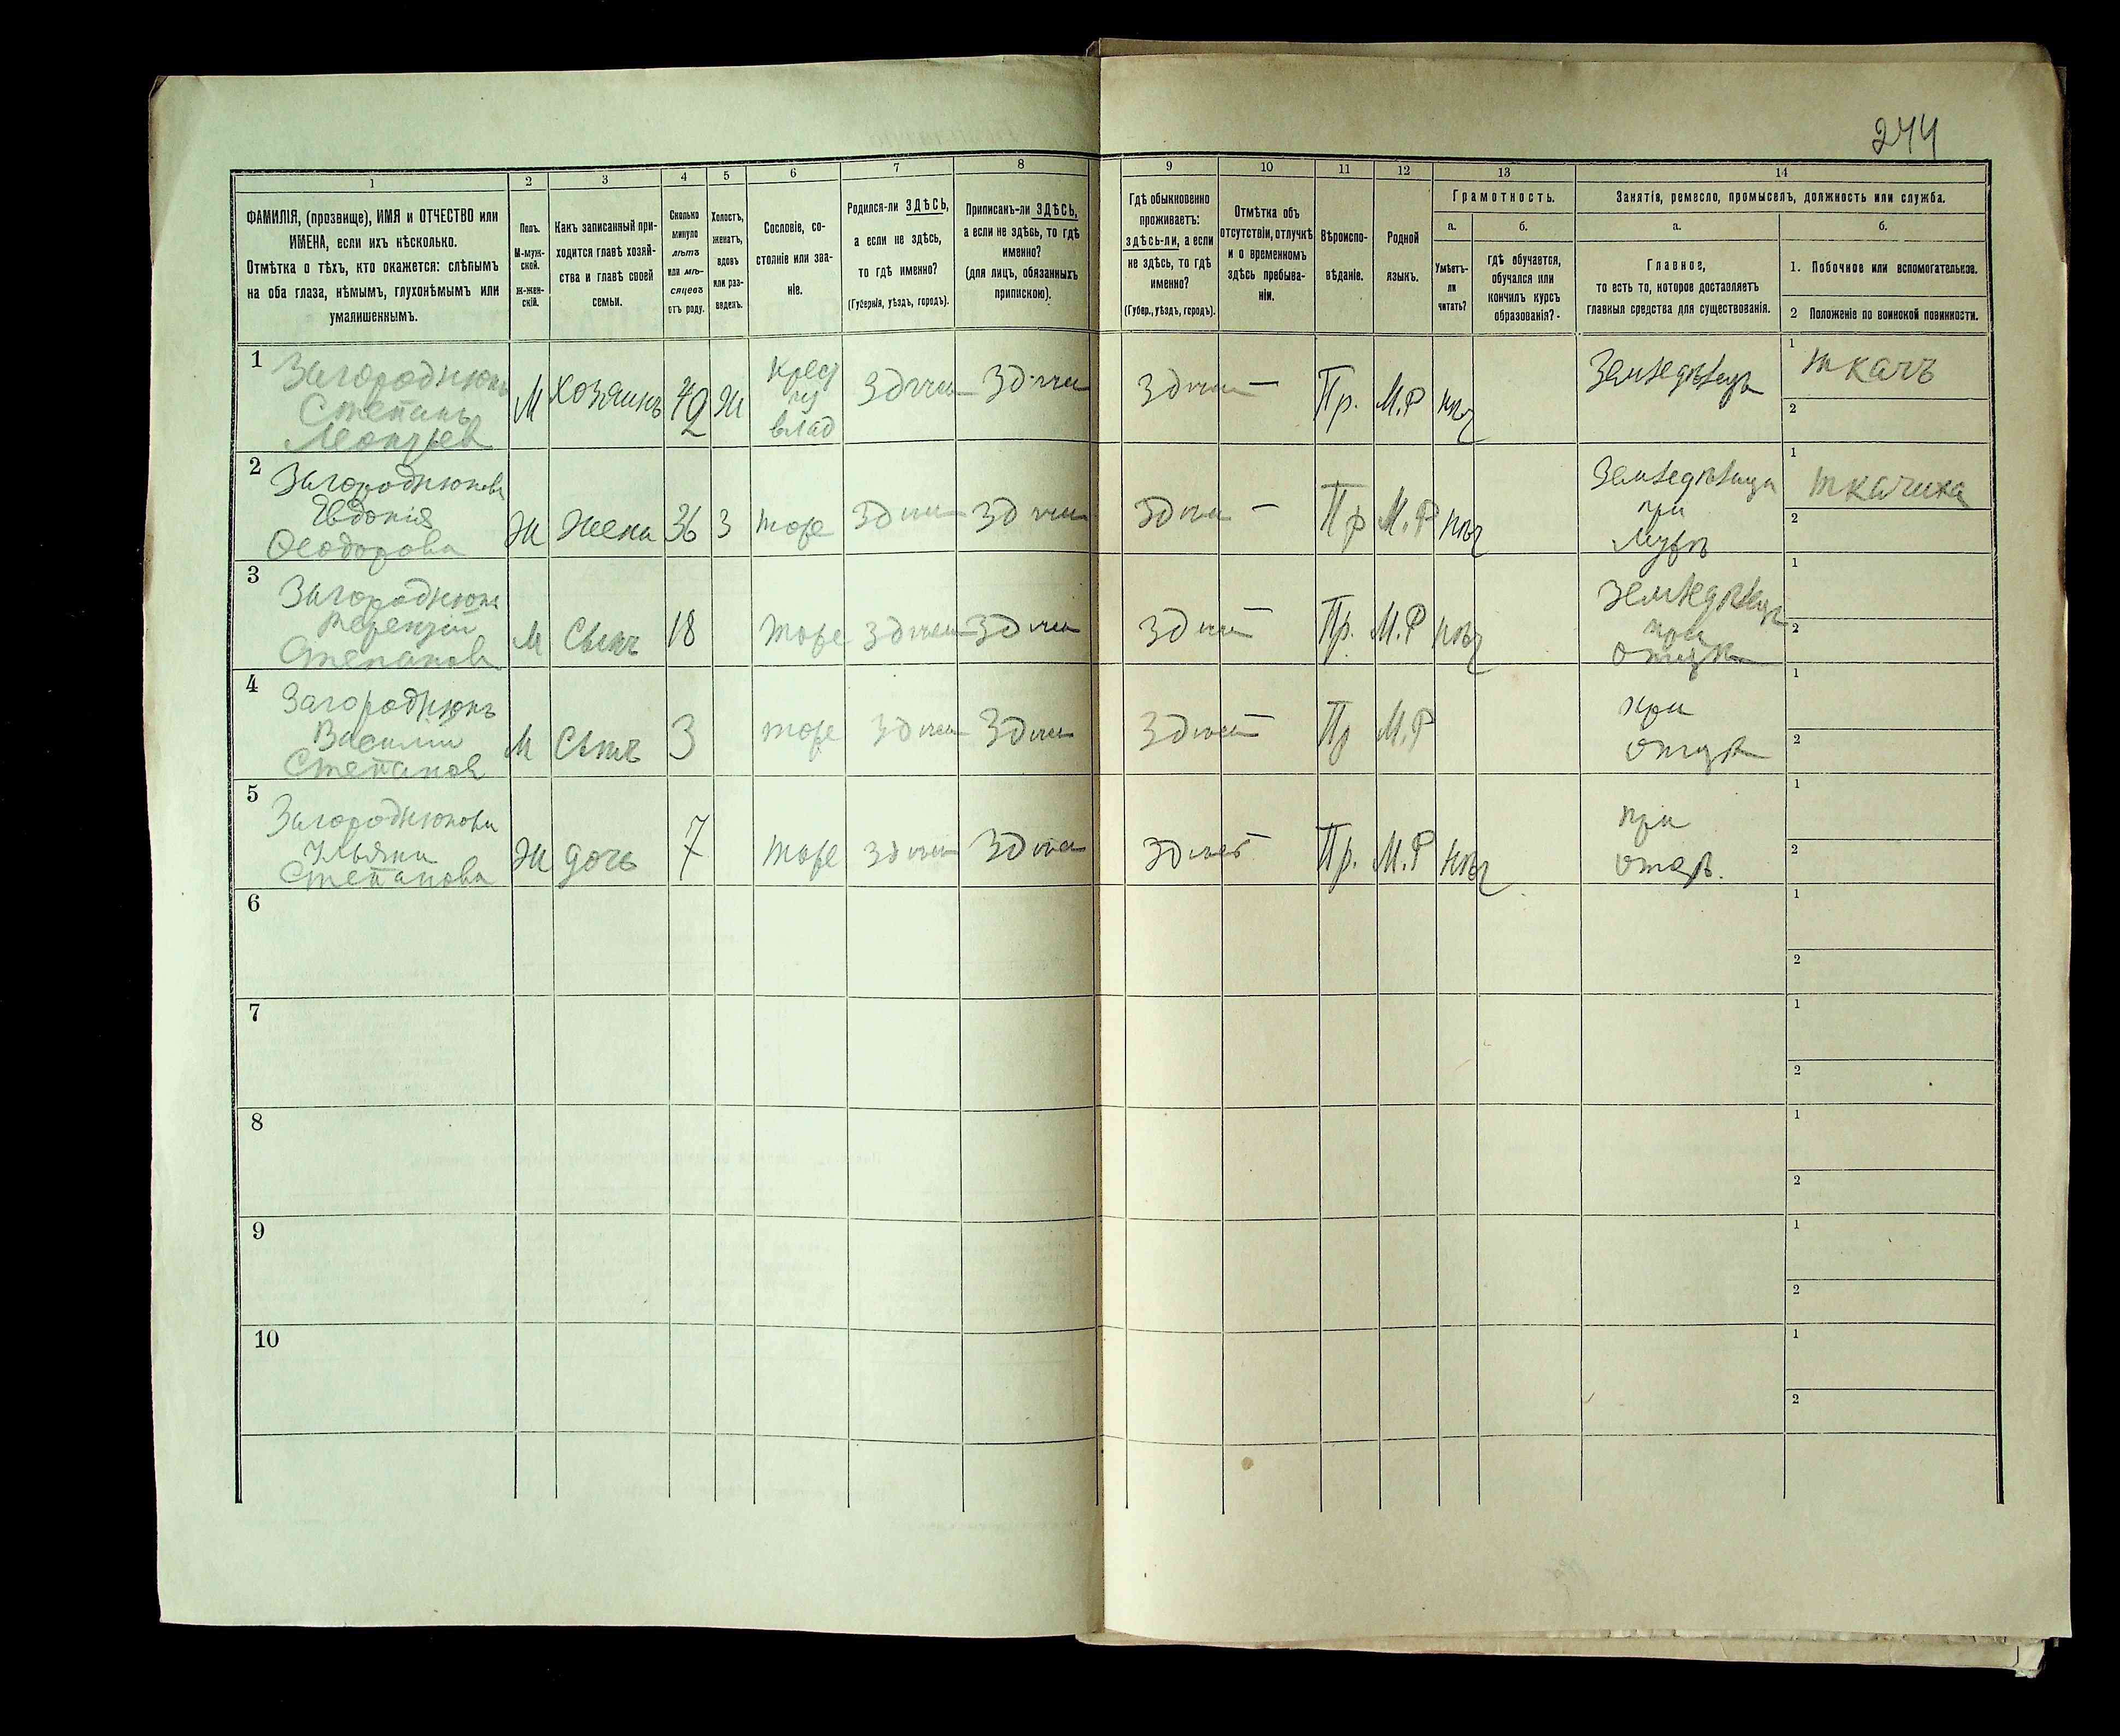 244
1 2 3 4 5 6 7 8 9 10 11 12 13 14
ФАМИЛІЯ, (прозвище), ИМЯ и ОТЧЕСТВО или
ИМЕНА, если ихъ нѣсколько.
Отмѣтка о тѣхъ, кто окажется: слѣпымъ
на оба глаза, нѣмымъ, глухонѣмымъ или
умалишеннымъ.
Полъ.
М-муж-
ской.
Ж-жен-
скій.
Какъ записанный при-
ходится главѣ хозяй-
ства и главѣ своей
семьи.
Сколько
минуло
лѣтъ
или мѣ-
сяцевъ
отъ роду.
Холостъ,
женатъ,
вдовъ
или раз-
веденъ.
Сословіе, со-
стояніе или зва-
ніе.
Родился-ли ЗДѢСЬ,
а если не здѣсь,
то гдѣ именно?
(Губернія, уѣздъ, городъ).
Приписанъ-ли ЗДѢСЬ,
а если не здѣсь, то гдѣ
именно?
(для лицъ, обязанныхъ
припискою).
Гдѣ обыкновенно
проживаетъ:
здѣсь-ли, а если
не здѣсь, то гдѣ
именно?
(Губер., уѣздъ, городъ).
Отмѣтка объ
отсутствіи, отлучкѣ
и о временномъ
здѣсь пребыва-
ніи.
Вѣроиспо-
вѣданіе.
Родной
языкъ.
Грамотность.
а.
Умѣетъ-
ли
читать?
б.
гдѣ обучается,
обучался или
кончилъ курсъ
образованія?
Занятія, ремесло, промыселъ, должность или служба.
а.
Главное,
то есть то, которое доставляетъ
главныя средства для существованія.
б.
1. Побочное или вспомогательное.
2 Положеніе по воинской повинности.
1
Загороднюкъ
Степанъ
Леонтьев
М
хозяинъ
42
Ж
крест
из
влад
Здѣсь
Здѣсь
Здѣсь
—
Пр.
М.Р
нѣт
Земледѣлецъ
1 ткачъ
2
2
Загороднюкова
Евдокія
Ѳеодорова
Ж
Жена
36
З
тоже
Здѣсь
Здѣсь
Здѣсь
—
Пр
М.Р
нѣт
Земледѣлица
при
Мужѣ
1 ткачиха
2
3
Загороднюкъ
Терентій
Степанов
М
Сынъ
18
тоже
Здѣсь
Здѣсь
Здѣсь
—
Пр.
М.Р
нѣт
Земледѣлецъ
при
отцѣ
1
2
4
Загороднюкъ
Василій
Степанов
М
Сынъ
3
тоже
Здѣсь
Здѣсь
Здѣсь
—
Пр
М.Р
при
отцѣ
1
2
5
Загороднюкова
Ульяна
Степанова
Ж
дочь
7
тоже
Здѣсь
Здѣсь
Здѣсь
—
Пр.
М.Р
нѣт
при
отцѣ.
1
2
6
1
2
7
1
2
8
1
2
9
1
2
10
1
2